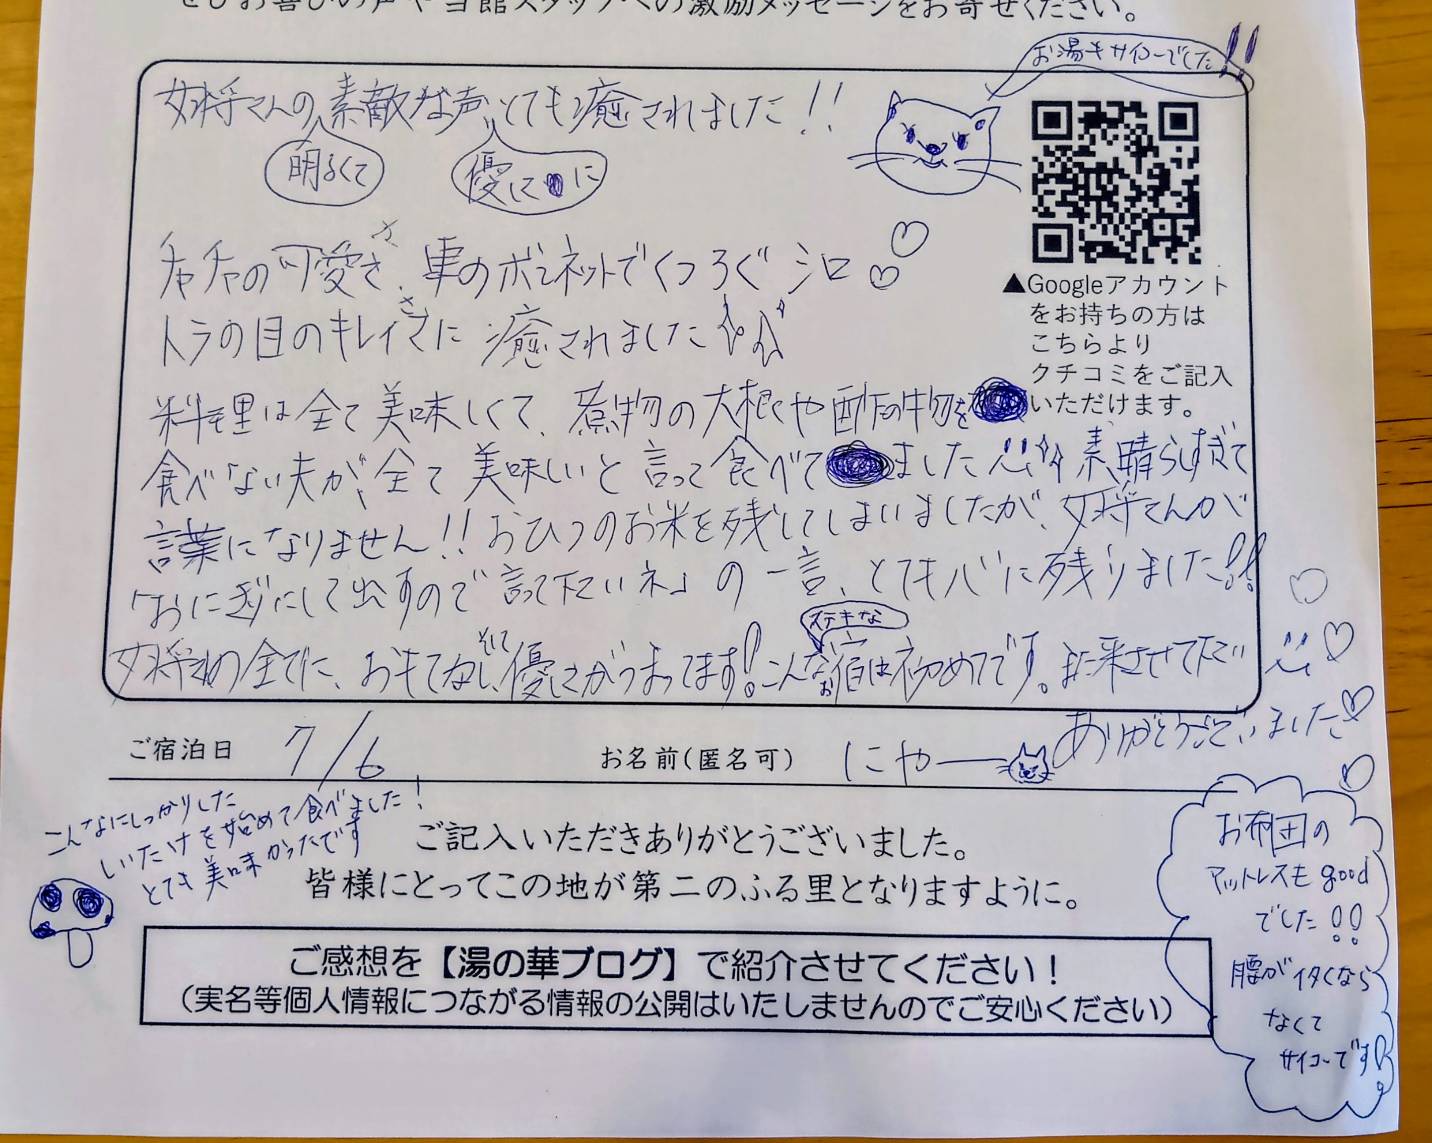 ぜひお喜びの声や当館スタッフへの激励メッセージをお寄せください。
お湯もサイコーでした!!
女将さんの素敵な声、とても癒されました!!
明るくて
優しに
チャチャの可愛さ、車のボンネットでくつろぐシロ
トラの目のキレイさに癒されました
料理は全て美味しくて、煮物の大根や酢の物を
食べない夫が、全て美味しいと言って食べてました 素晴らしすぎて
言葉になりません!!おひつのお米を残してしまいましたが、女将さんが
「おにぎりにして出すので言って下さいネ」の一言、とても心に残りました!!
女将さんの全てに、おもてなし、そして優しさがつまってます!こんなステキなお宿は初めてです。また来させて下さい
▲Googleアカウント
をお持ちの方は
こちらより
クチコミをご記入
いただけます。
ありがとうございました
ご宿泊日 7/6 お名前(匿名可) にゃー
こんなにしっかりした
しいたけを始めて食べました!
とても美味かったです
ご記入いただきありがとうございました。
皆様にとってこの地が第二のふる里となりますように。
お布団の
マットレスもgood
でした!!
腰がイタくなら
なくて
サイコーです!
ご感想を【湯の華ブログ】で紹介させてください!
(実名等個人情報につながる情報の公開はいたしませんのでご安心ください)